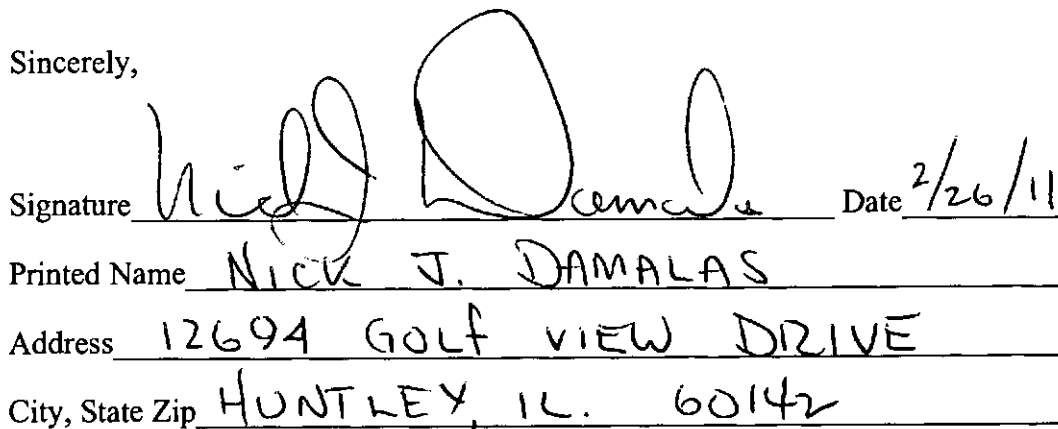 Sincerely,
Signature Nick J Damalas Date 2/26/11
Printed Name NICK J. DAMALAS
Address 12694 GOLF VIEW DRIVE
City, State Zip HUNTLEY, IL. 60142